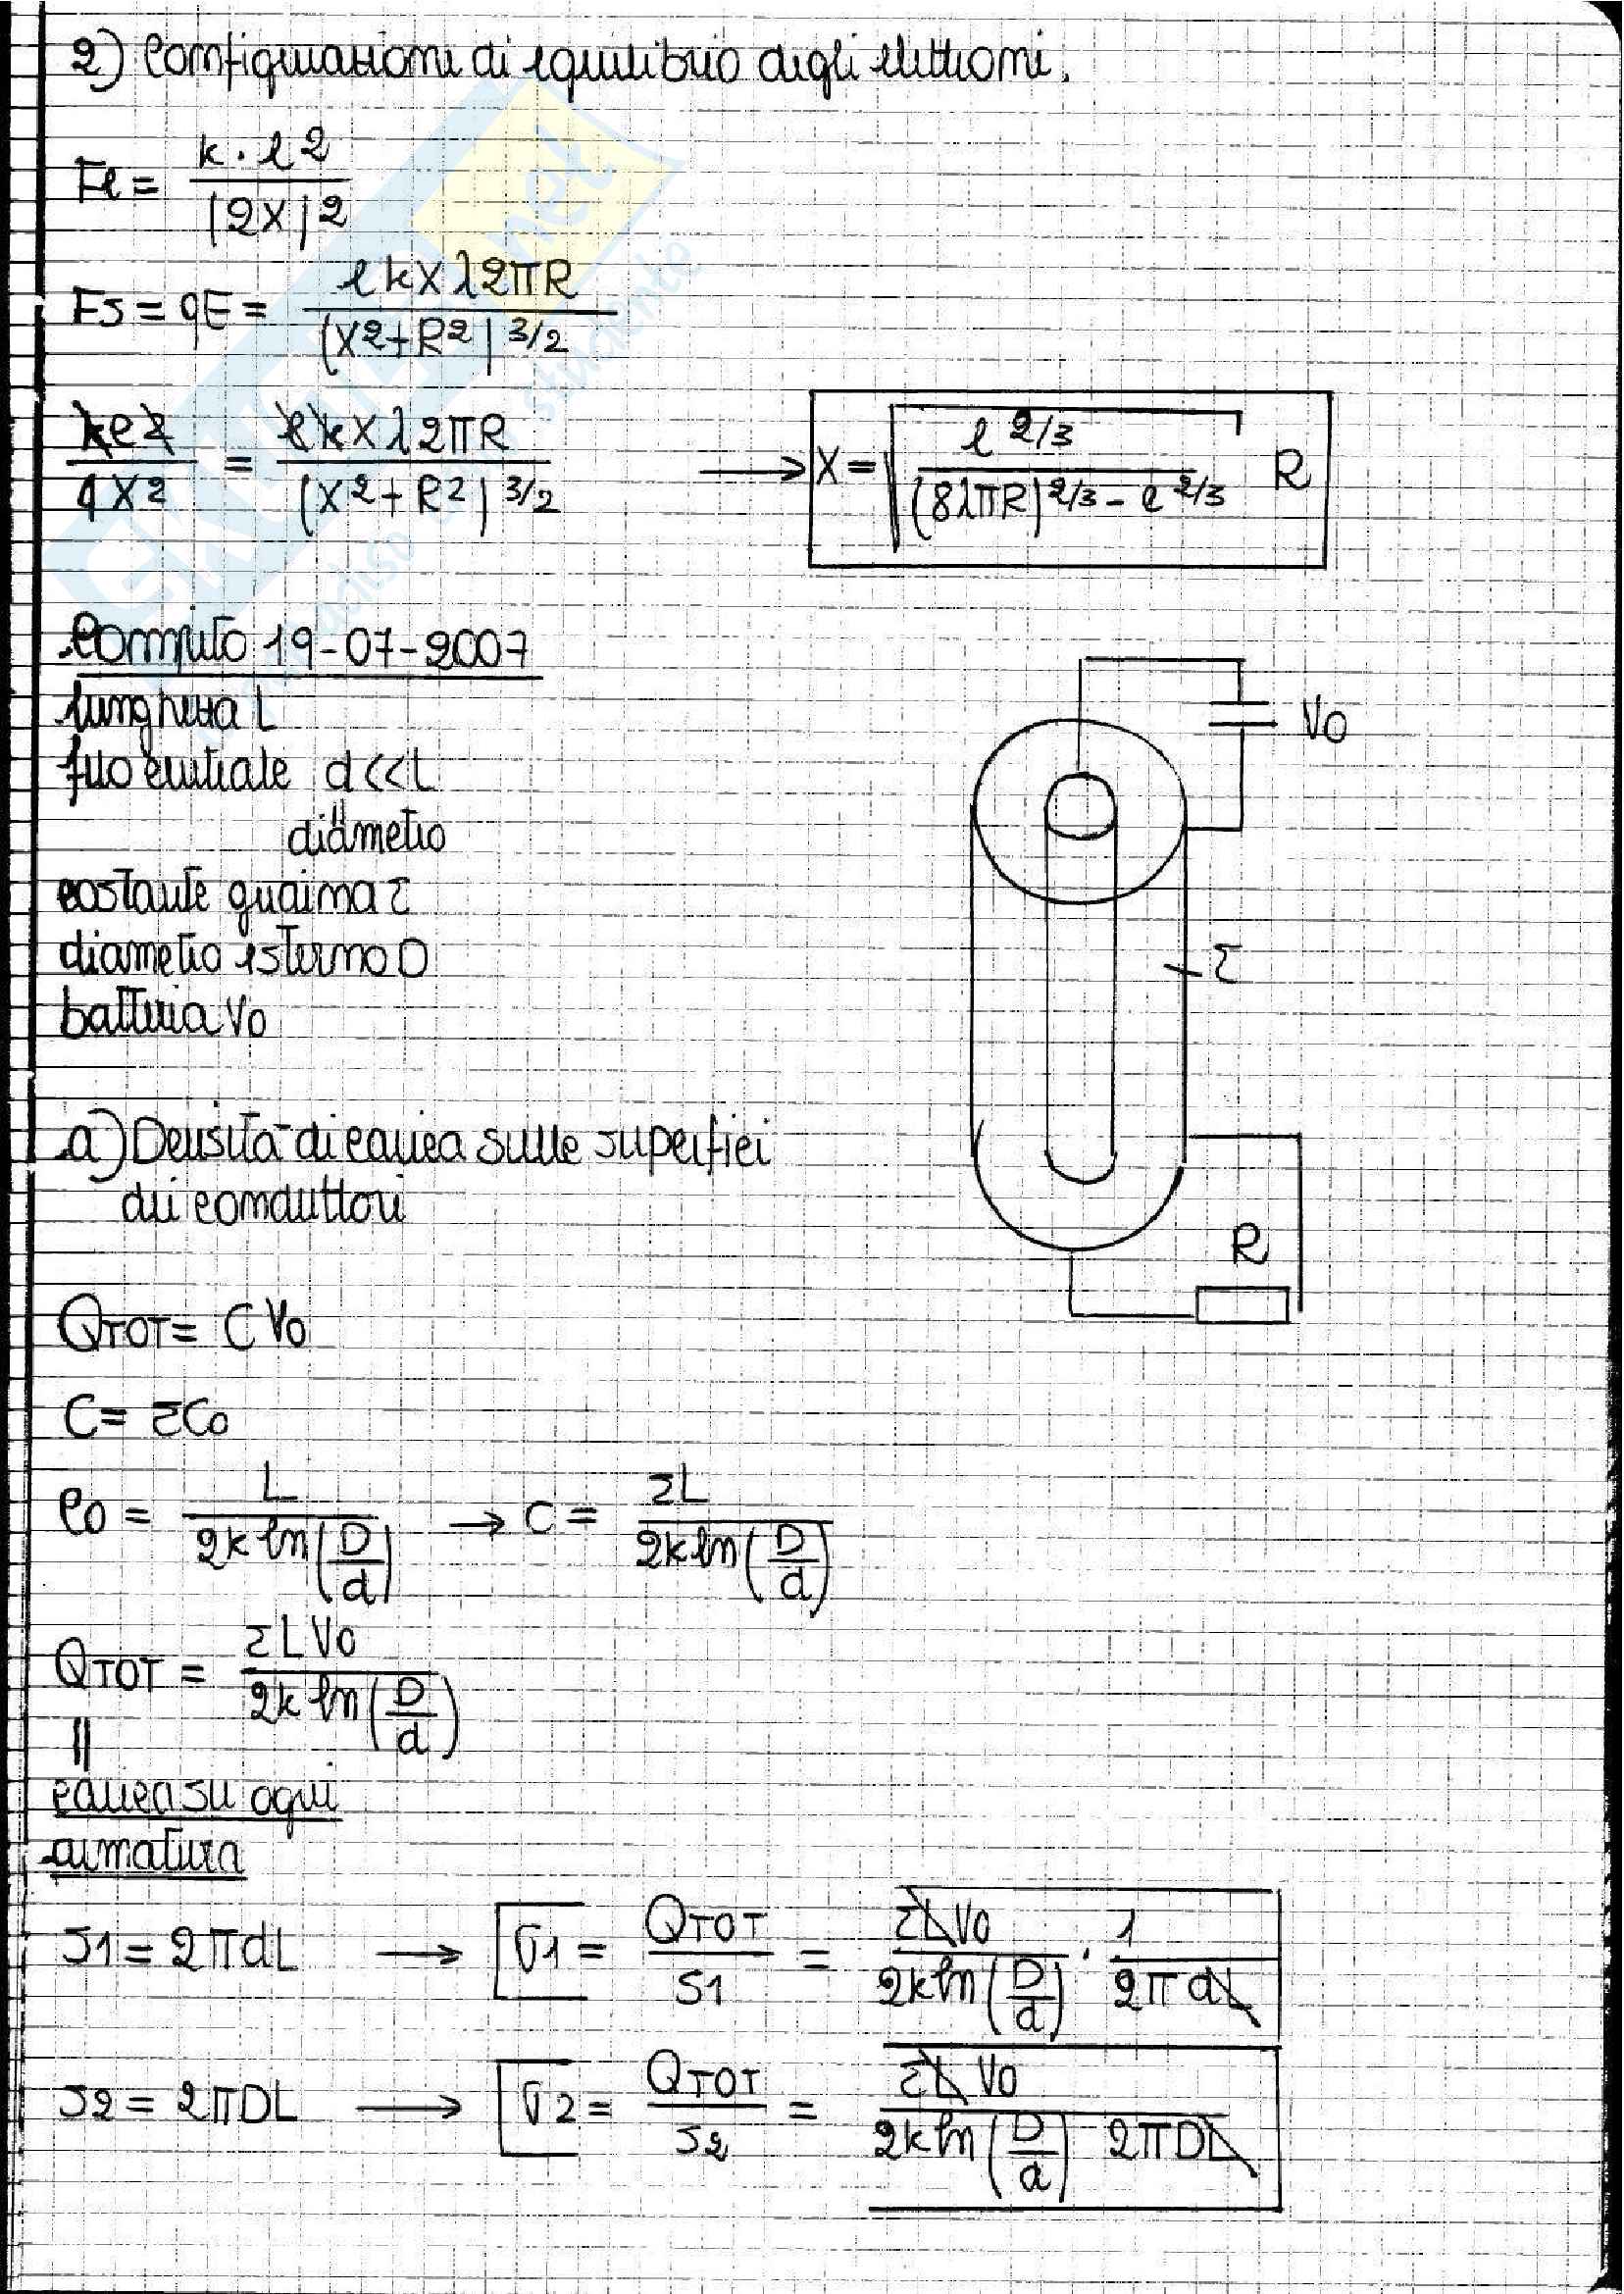 2) Configurazione di equilibrio degli elettroni.
Fe = k · e² / (2x)²
Fs = qE = e k x λ 2πR / (x² + R²)^3/2
ke² / 4x² = e k x λ 2πR / (x² + R²)^3/2 → x = √( e^2/3 / ((8λπR)^2/3 - e^2/3) ) R
Compito 19-07-2007
lunghezza L
filo centrale d << L
diametro
costante guaina ε
diametro esterno D
batteria V0
V0
ε
R
a) Densità di carica sulle superfici
dei conduttori
QTOT = C V0
C = εC0
C0 = L / 2k ln(D/d) → C = εL / 2k ln(D/d)
QTOT = εLV0 / 2k ln(D/d)
=
carica su ogni
armatura
S1 = 2πdL → σ1 = QTOT / S1 = εLV0 / 2k ln(D/d) · 1 / 2πdL
S2 = 2πDL → σ2 = QTOT / S2 = εLV0 / 2k ln(D/d) 2πDL